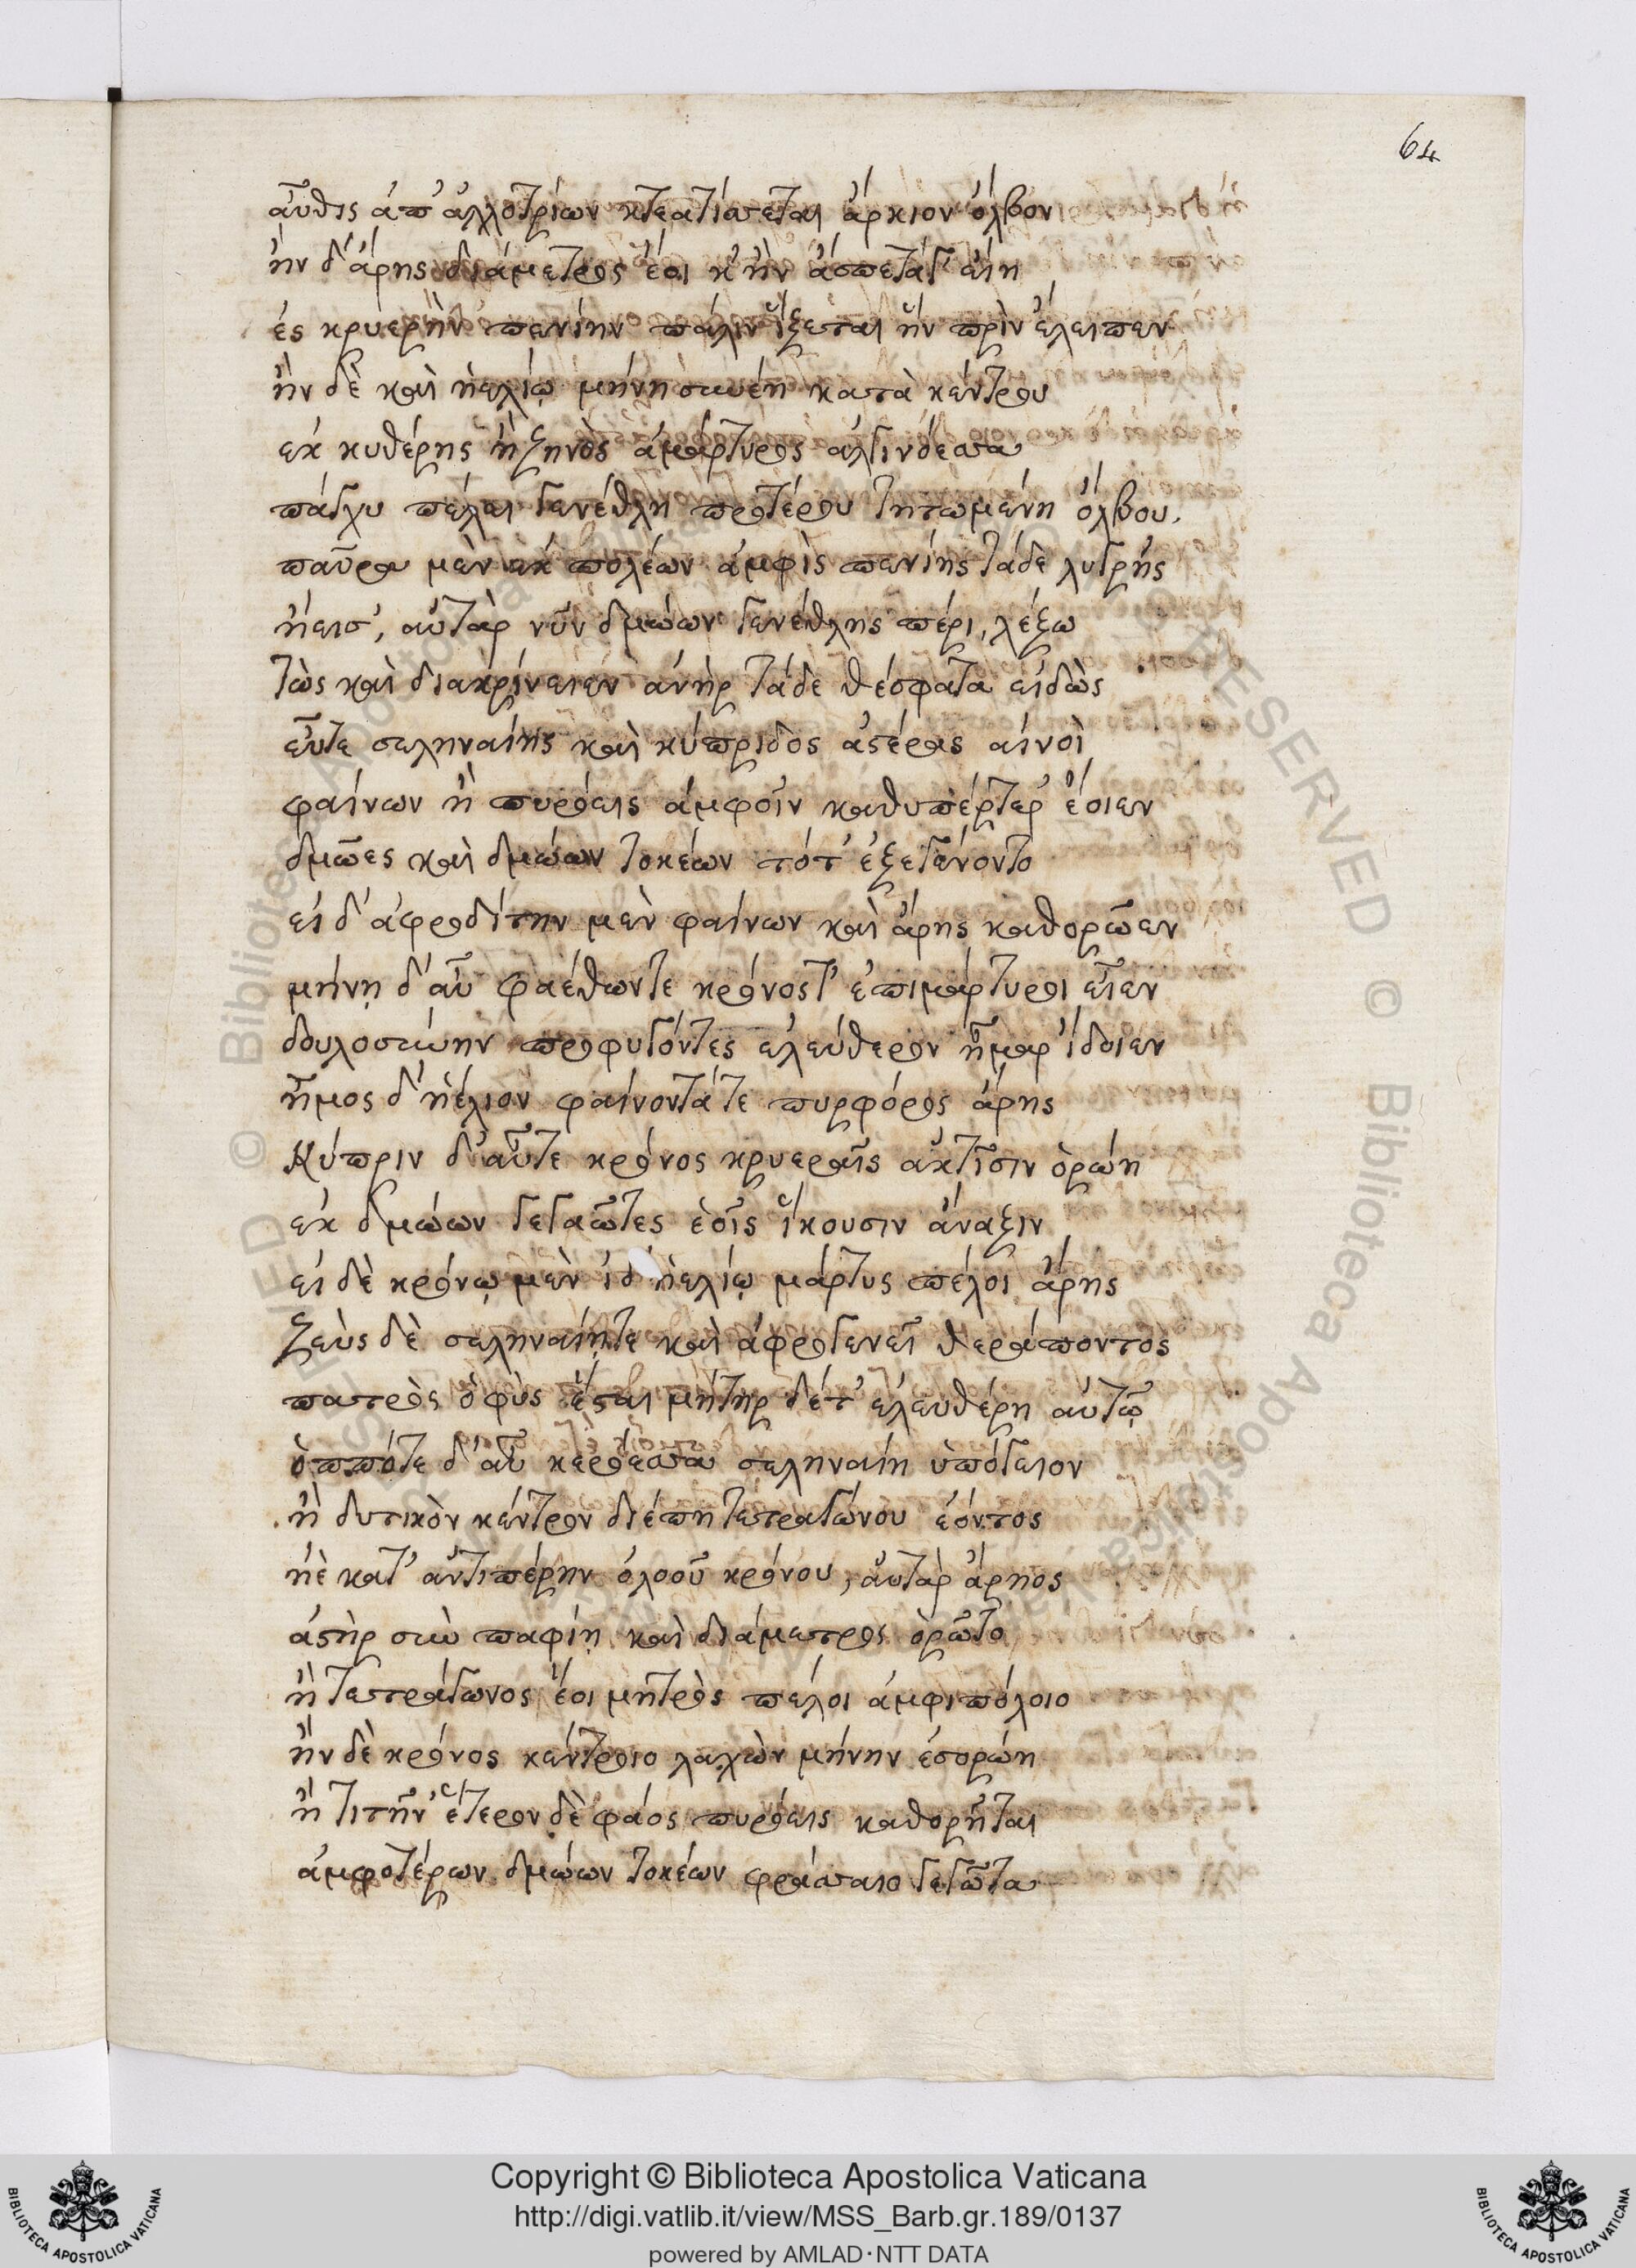 64
αὖθις ἀπ' ἀλλοτρίων κτεατίσεται ἄρκιον ὄλβον
ἢν δ' ἄρης διάμετρος ἔοι κ' ἢν ἄσπετά γ' εἴη
ἐς κρυερὴν πενίην πάλιν ἵξεται ἣν πρὶν ἔλειπεν
ἢν δὲ καὶ ἠελίῳ μήνη συνέῃ κατὰ κέντρου
ἐκ κυθέρης ἢ ζηνὸς ἀμάρτυρος ἀλγινόεσσα
πάγχυ πέλει γενέθλη προτέρου τητωμένη ὄλβου.
παῦρα μὲν ἐκ πολέων ἀμφὶς πενίης τάδε λυγρῆς
ἤεισ', αὐτὰρ νῦν δμώων γενέθλης πέρι, λέξω
τὼς καὶ διακρίνειεν ἀνὴρ τάδε θέσφατα εἰδὼς
εὖτε σεληναίης καὶ κύπριδος ἀστέρας αἰνοὶ
φαίνων ἢ πυρόεις ἀμφοῖν καθυπέρτερ' ἔοιεν
δμῶες καὶ δμώων τοκέων τότ' ἐξεγένοντο
εἰ δ' ἀφροδίτην μὲν φαίνων καὶ ἄρης καθορῶεν
μήνῃ δ' αὖ φαέθωντε κρόνος τ' ἐπιμάρτυροι εἶεν
δουλοσύνην προφυγόντες ἐλεύθερον ἦμαρ ἴδοιεν
ἦμος δ' ἠέλιον φαίνοντάτε πυρφόρος ἄρης
Κύπριν δ' αὖτε κρόνος κρυεραῖς ἀκτῖσιν ὁρώῃ
ἐκ δμώων γεγαῶτες ἑοῖς ἵκουσιν ἄναξιν
εἰ δὲ κρόνῳ μὲν ἰδ' ἠελίῳ μάρτυς πέλοι ἄρης
ζεὺς δὲ σεληναίῃτε καὶ ἀφρογενεῖ θεράποντος
πατρὸς ὁ φὺς ἔσται μήτηρ δέτ' ἐλευθέρη αὐτῷ
ὁππότε δ' αὖ κερόεσσα σεληναίη ὑπόγειον
ἢ δυτικὸν κέντρον διέπῃ τετραγώνου ἐόντος
ἠὲ κατ' ἀντιπέρην ὀλοοῦ κρόνου, αὐτὰρ ἄρηος
ἀστὴρ σὺν παφίῃ καὶ διάμετρος ὁρῶτο
ἢ τετράγωνος ἔοι μητρὸς πέλοι ἀμφιπόλοιο
ἢν δὲ κρόνος κέντροιο λαχὼν μήνην ἐσορώῃ
ἢ τιτῆν' ἕτερον δὲ φάος πυρόεις καθορῆται
ἀμφοτέρων δμώων τοκέων φράσσαιο γεγῶτα
Copyright © Biblioteca Apostolica Vaticana
http://digi.vatlib.it/view/MSS_Barb.gr.189/0137
powered by AMLAD·NTT DATA